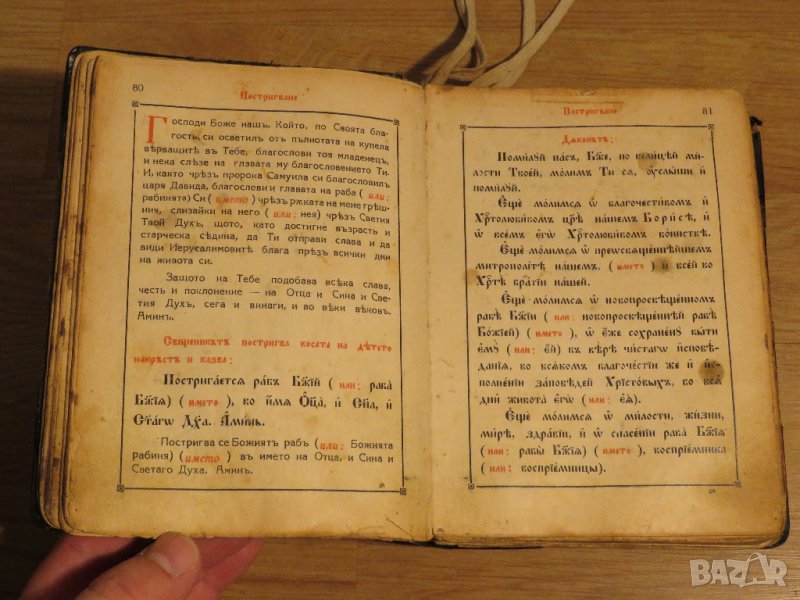 80
Постригванє
Господи Боже нашъ, Който, по Своята бла-
гость, си осветилъ отъ пълнотата на купела
вѣрващитѣ въ Тебе, благослови тоя младенецъ,
и нека слѣзе на главата му благословението Ти.
И, както чрѣзъ пророка Самуила си благословилъ
царя Давида, благослови и главата на раба (или:
рабинята) Си (името) чрѣзъ рѫката на мене грѣш-
ния, слизайки на него (или: нея) чрѣзъ Светия
Твой Духъ, щото, като достигне възрасть и
старческа сѣдина, да Ти отправи слава и да
види Иерусалимовитѣ блага прѣзъ всички дни
на живота си.
Защото на Тебе подобава всѣка слава,
честь и поклонение — на Отца и Сина и Све-
тия Духъ, сега и винаги, и во вѣки вѣковъ.
Аминъ.
Свещеникътъ постригва косата на дѣтето
накръстъ и казва:
Постригаетсѧ рабъ Бж҃їй (или: раба
Бж҃їѧ) (името), во и҆́мѧ Ѻ҆ц҃а̀, и҆ Сн҃а, и҆
Ст҃а́гѡ Дх҃а. А҆ми́нь.
Постригва се Божиятъ рабъ (или: Божията
рабиня) (името) въ името на Отца, и Сина и
Светаго Духа. Аминъ.
Постригванє
81
Дꙗконътъ:
Поми́лꙋй на́съ, Бж҃е, по вели́цѣй ми́-
лости Твое́й, мо́лимъ Ти сѧ, ᲂу҆слы́ши и҆
поми́лꙋй.
Е҆щѐ мо́лимсѧ ѡ҆ благочести́вомъ и҆
Хрⷭ҇толюби́вомъ цр҃ѣ̀ на́шемъ Бори́сѣ, и҆
ѡ҆ все́мъ є҆гѡ̀ Хрⷭ҇толюби́вомъ во́инствѣ.
Е҆щѐ мо́лимсѧ ѡ҆ преѡсвѧще́ннѣйшемъ
митрополі́тѣ на́шемъ. (името) и҆ все́й во
Хрⷭ҇тѣ̀ бра́тїи на́шей.
Е҆щѐ мо́лимсѧ ѡ҆ новопросвѣще́нномъ
рабѣ̀ Бж҃їи (или: новопросвѣще́ннѣй рабѣ̀
Бо́жїей) (името), ѡ҆ є҆́же сохране́нꙋ бы́ти
є҆мꙋ̀ (или: є҆́й) въ вѣ́рѣ чи́стагѡ и҆сповѣ́-
данїѧ, во всѧ́комъ благоче́стїи же и҆ и҆-
сполне́нїи за́повѣдей Хрїсто́выхъ, во всѧ̑
дни̑ живота̀ є҆гѡ̀ (или: є҆ѧ̀).
Е҆щѐ мо́лимсѧ ѡ҆ ми́лости, жи́зни,
ми́рѣ, здра́вїи, и҆ ѡ҆ спасе́нїи раба̀ Бж҃їѧ
(или: рабы̀ Бж҃їѧ) (името), воспрїе́мника
(или: воспрїе́мницы).
6*
BAZAR
bazar.bg